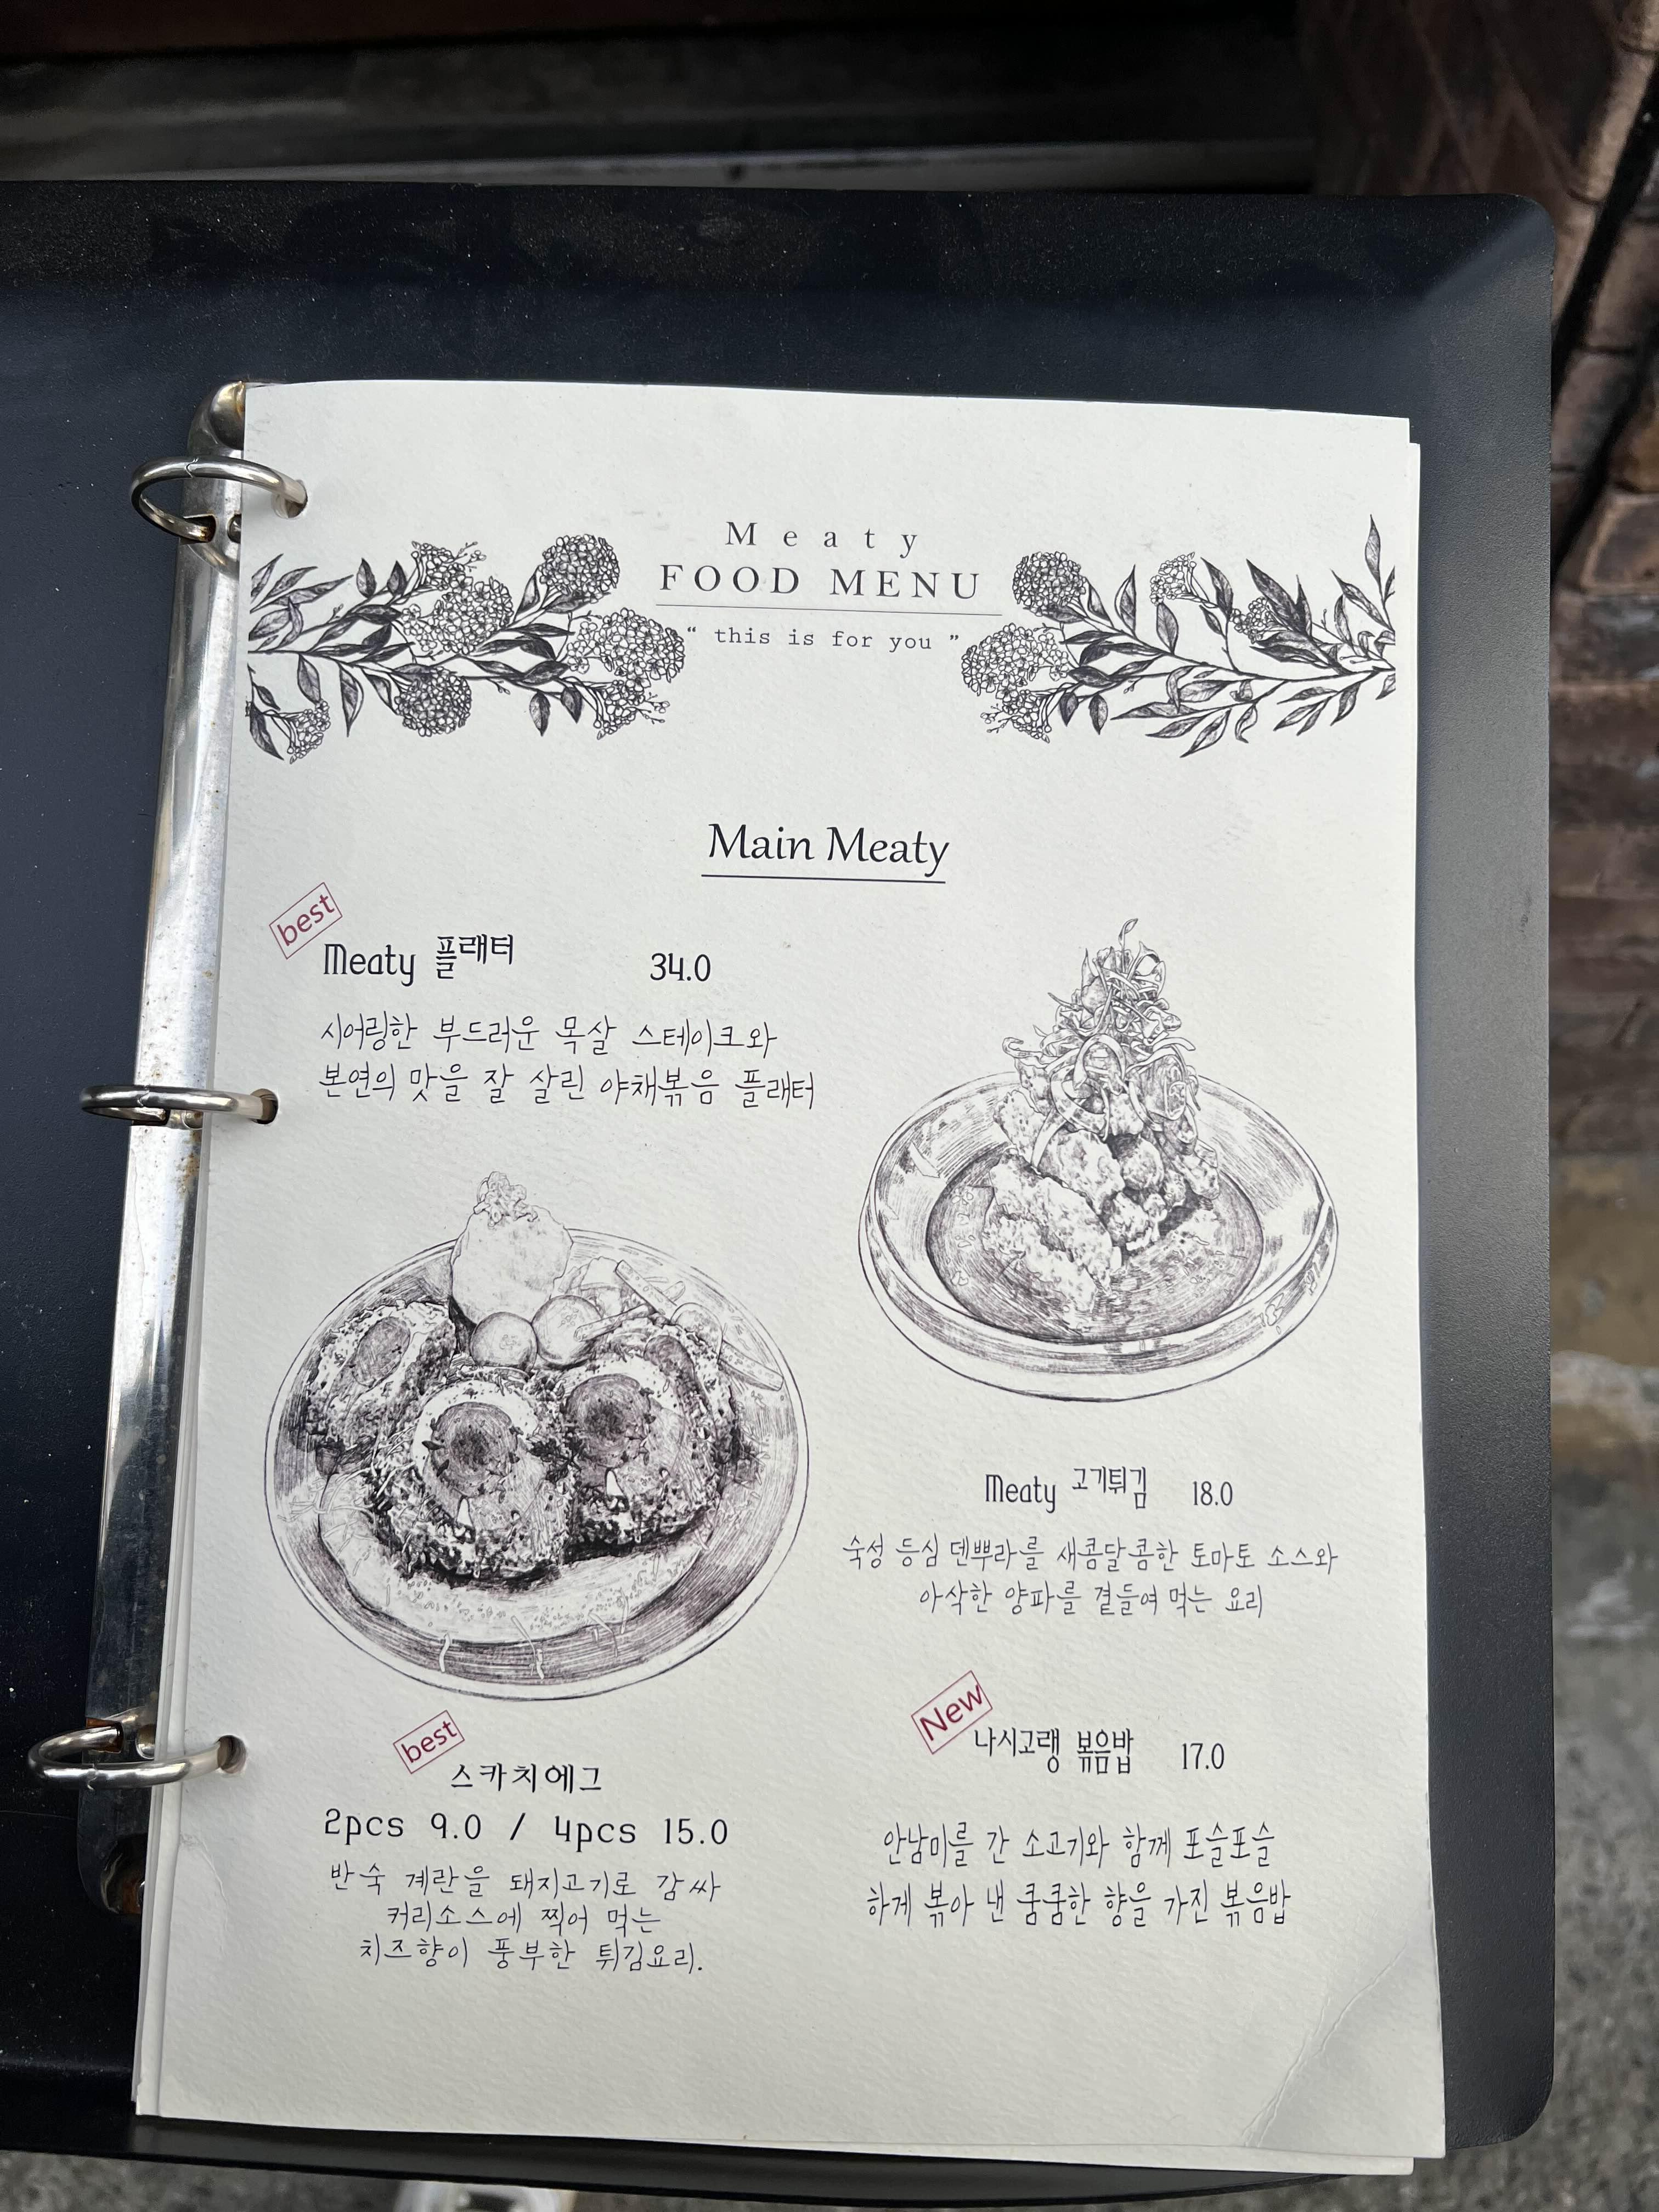 Meaty
FOOD MENU
“ this is for you ”
Main Meaty
best
Meaty 플래터 34.0
시어링한 부드러운 목살 스테이크와
본연의 맛을 잘 살린 야채볶음 플래터
best
스카치에그
2pcs 9.0 / 4pcs 15.0
반숙 계란을 돼지고기로 감싸
커리소스에 찍어 먹는
치즈향이 풍부한 튀김요리.
Meaty 고기튀김 18.0
숙성 등심 덴뿌라를 새콤달콤한 토마토 소스와
아삭한 양파를 곁들여 먹는 요리
New
나시고랭 볶음밥 17.0
안남미를 간 소고기와 함께 포슬포슬
하게 볶아 낸 쿰쿰한 향을 가진 볶음밥